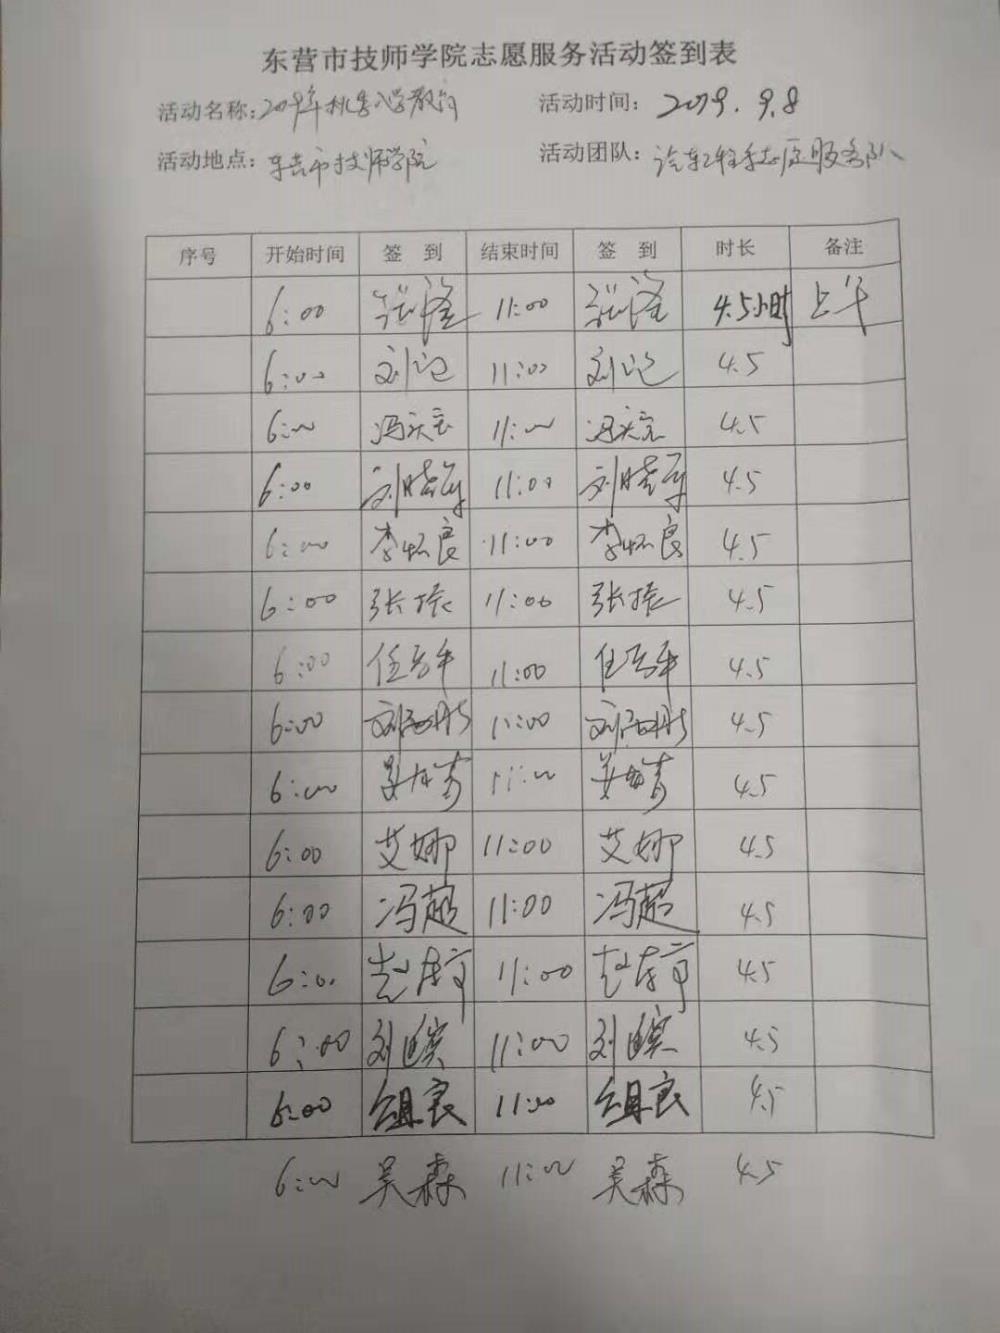 东营市技师学院志愿服务活动签到表
活动名称: 2019年秋季入学教育 活动时间: 2019.9.8
活动地点: 东营市技师学院 活动团队: 汽车工程系志愿服务队
序号 开始时间 签 到 结束时间 签 到 时长 备注
6:00 张隆 11:00 张隆 4.5小时 上午
6:00 刘 11:00 刘 4.5
6:00 冯庆宝 11:00 冯庆宝 4.5
6:00 刘晓 11:00 刘晓 4.5
6:00 李怀良 11:00 李怀良 4.5
6:00 张振 11:00 张振 4.5
6:00 任 11:00 任 4.5
6:00 刘 11:00 刘 4.5
6:00 姜 11:00 姜 4.5
6:00 艾娜 11:00 艾娜 4.5
6:00 冯超 11:00 冯超 4.5
6:00 赵 11:00 赵 4.5
6:00 刘 11:00 刘 4.5
6:00 11:00 4.5
6:00 吴森 11:00 吴森 4.5